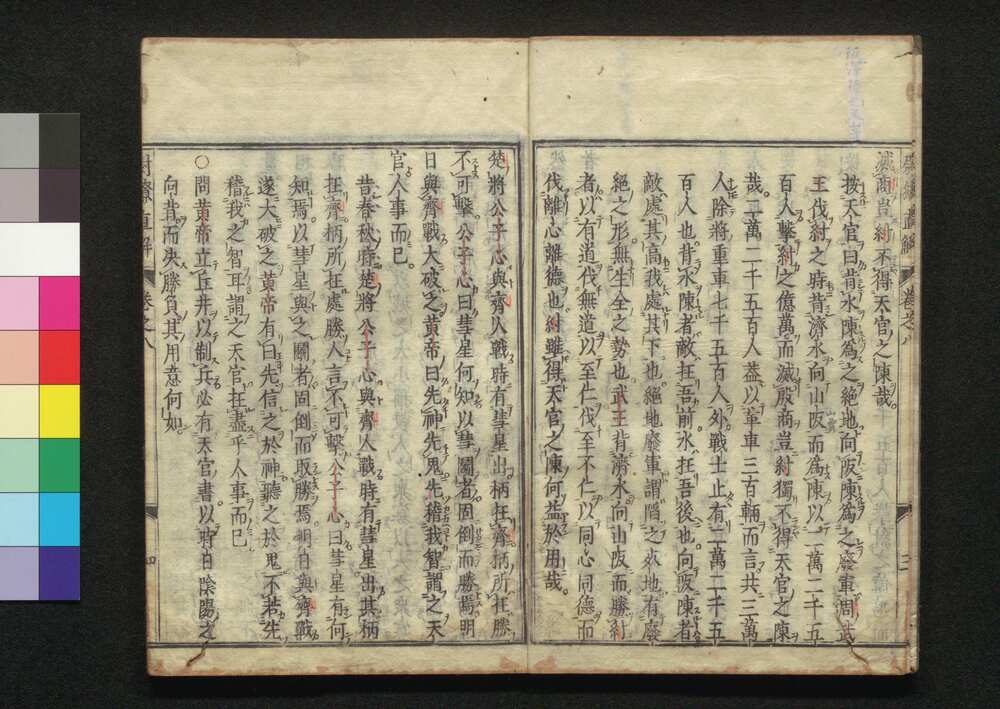 滅商豈紂不得天官之陳哉
按天官曰背水陳爲之絕地向阪陳爲之廢軍周武
王伐紂之時背濟水向山阪而爲陳以二萬二千五
百人擊紂之億萬而滅殷商豈紂獨不得天官之陳
哉二萬二千五百人蓋以軍車三百輛而言共三萬
人除將重車七千五百人外戰士止有二萬二千五
百人也背水陳者敵在吾前水在吾後也向阪陳者
敵處其高我處其下也絕地廢軍謂陷之死地有廢
絕之形無生全之勢也武王背濟水向山阪而勝紂
者以有道伐無道以至仁伐至不仁以同心同德而
伐離心離德也紂雖得天官之陳何益於用哉
楚將公子心與齊人戰時有彗星出柄在齊柄所在勝
不可擊公子心曰彗星何知以彗鬪者固倒而勝焉明
日與齊戰大破之黃帝曰先神先鬼先稽我智謂之天
官人事而已
昔春秋時楚將公子心與齊人戰時有彗星出其柄
在齊柄所在處勝人言不可擊公子心曰彗星有何
知焉以彗星與之鬪者固倒而取勝焉明日與齊戰
遂大破之黃帝有曰先信之於神聽之於鬼不若先
稽我之智耳謂之天官在盡乎人事而已
○問黃帝立丘井以制兵必有天官書以時日陰陽之
向背而決勝負其用意何如
尉繚直解 卷之八 四